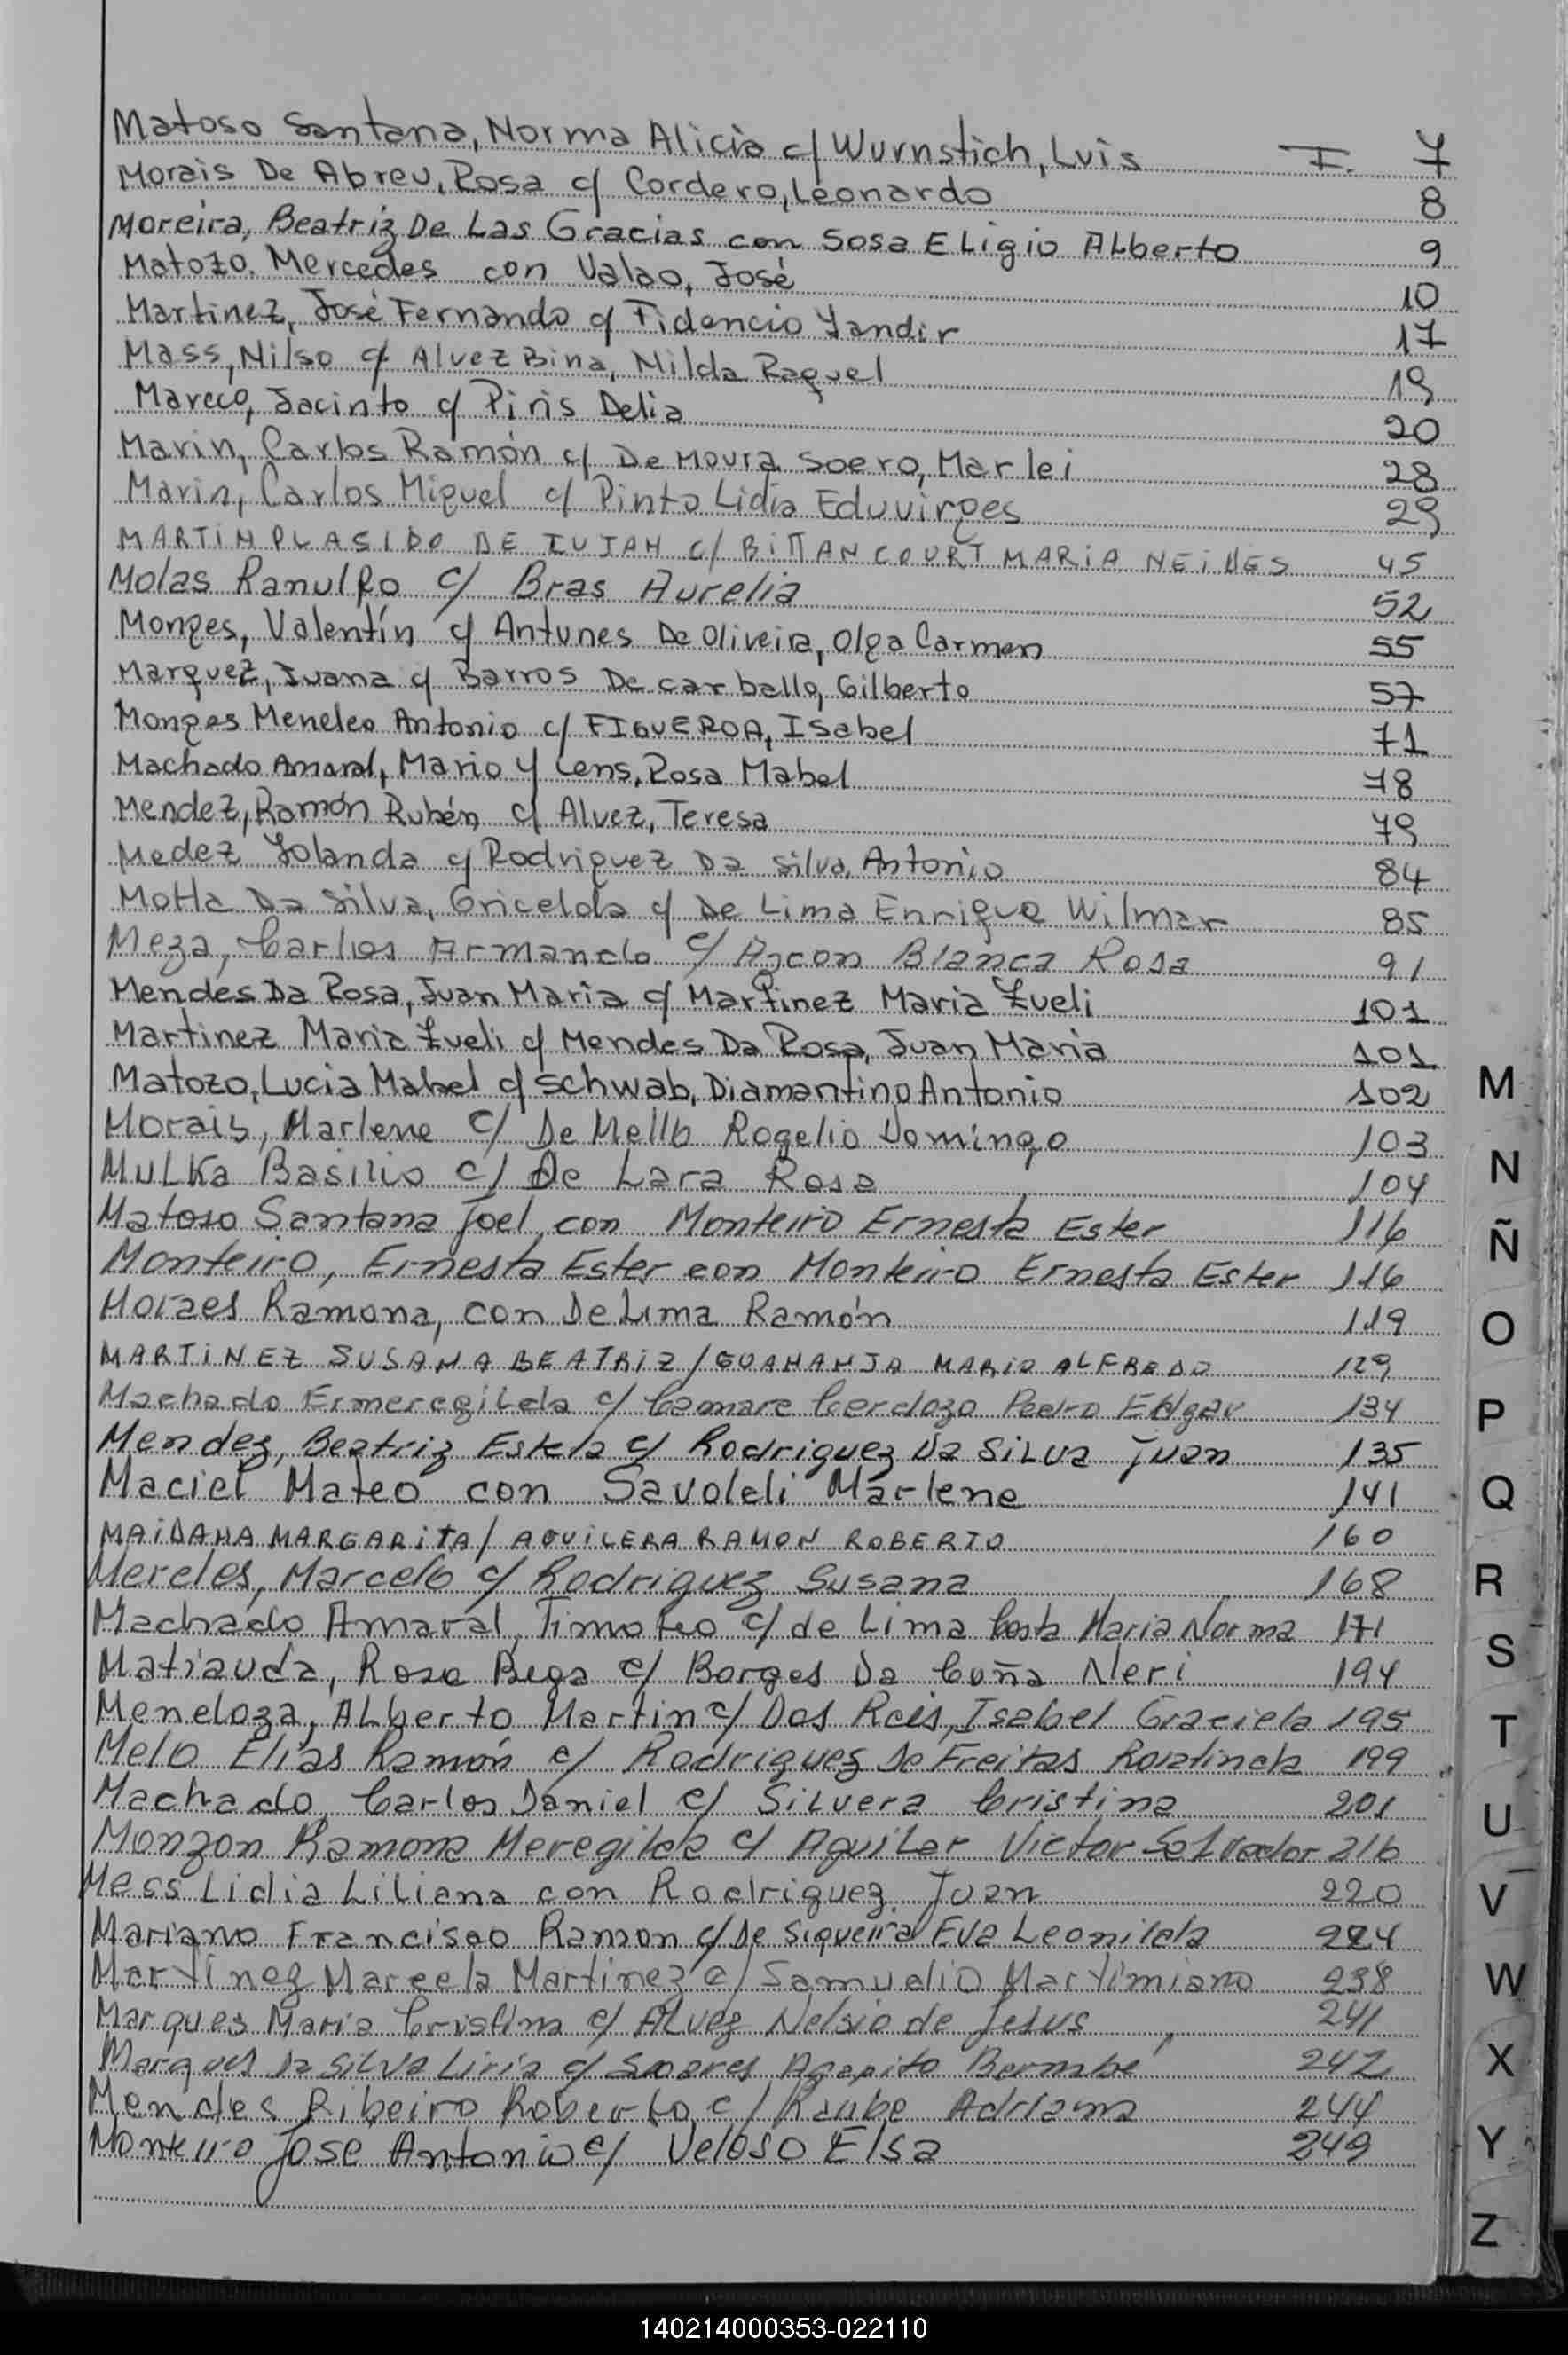 Matoso Santana, Norma Alicia c/ Wurnstich, Luis F. 7
Morais De Abreu, Rosa c/ Cordero, Leonardo 8
Moreira, Beatriz De Las Gracias con Sosa Eligio Alberto 9
Matozo. Mercedes con Valao, José 10
Martinez, José Fernando c/ Fidencio Yandir 17
Mass, Nilso c/ Alvez Bina, Nilda Raquel 19
Mareco, Jacinto c/ Piris Delia 20
Marin, Carlos Ramón c/ De Moura Soero, Marlei 28
Marin, Carlos Miguel c/ Pinto Lidia Eduvirges 29
MARTIN PLASIDO DE LUJAN c/ BITTANCOURT MARIA NEIDES 45
Molas Ranulfo c/ Bras Aurelia 52
Monges, Valentín c/ Antunes De Oliveira, Olga Carmen 55
Marquez, Juana c/ Barros De carballo, Gilberto 57
Monges Meneleo Antonio c/ FIGUEROA, Isabel 71
Machado Amaral, Mario y Lens, Rosa Mabel 78
Mendez, Ramón Rubén c/ Alvez, Teresa 79
Medez Yolanda c/ Rodriguez Da Silva, Antonio 84
Motta Da Silva, Gricelda c/ De Lima Enrique Wilmar 85
Meza, Carlos Armando c/ Azcon Blanca Rosa 91
Mendes Da Rosa, Juan Maria c/ Martinez Maria Zueli 101
Martinez Maria Zueli c/ Mendes Da Rosa, Juan Maria 101
Matozo, Lucia Mabel c/ Schwab, Diamantino Antonio 102
Morais, Marlene c/ De Mello Rogelio Domingo 103
Mulka Basilio c/ De Lara Rosa 104
Matoso Santana Joel, con Monteiro Ernesta Ester 116
Monteiro, Ernesta Ester con Monteiro Ernesta Ester 116
Moraes Ramona, con De Lima Ramón 119
MARTINEZ SUSANA BEATRIZ / MARIO ALFREDO 129
Machado Ermeregilda c/ Camare Cardozo Pedro Edgar 134
Mendez, Beatriz Estela c/ Rodriguez Da Silva Juan 135
Maciel Mateo con Savoldi Marlene 141
MAIDANA MARGARITA / AGUILERA RAMON ROBERTO 160
Mereles, Marcelo c/ Rodriguez Susana 168
Machado Amaral, Timoteo c/ de Lima Costa Maria Norma 171
Matiauda, Rosa c/ Borges Da Cuña Neri 194
Mendoza, Alberto Martin c/ Dos Reis, Isabel Graciela 195
Melo Elias Ramón c/ Rodriguez De Freitas Roralinda 199
Machado, Carlos Daniel c/ Silvera Cristina 201
Monzon Ramona Meregilda c/ Aguilar Victor Salvador 216
Mess Lidia Liliana con Rodriguez Juan 220
Mariano Francisco Ramon c/ De Siqueira Eva Leonilda 224
Martinez Marcela Martinez c/ Samudio Martimiano 238
Marques Maria Cristina c/ Alvez Nelsio de Jesus 241
Marques Da Silva Liria c/ Soares Agapito Bernabé 242
Mendes Ribeiro Roberto, c/ Raube Adriana 244
Monteiro Jose Antonio c/ Veloso Elsa 249
M
N
Ñ
O
P
Q
R
S
T
U
V
W
X
Y
Z
140214000353-022110